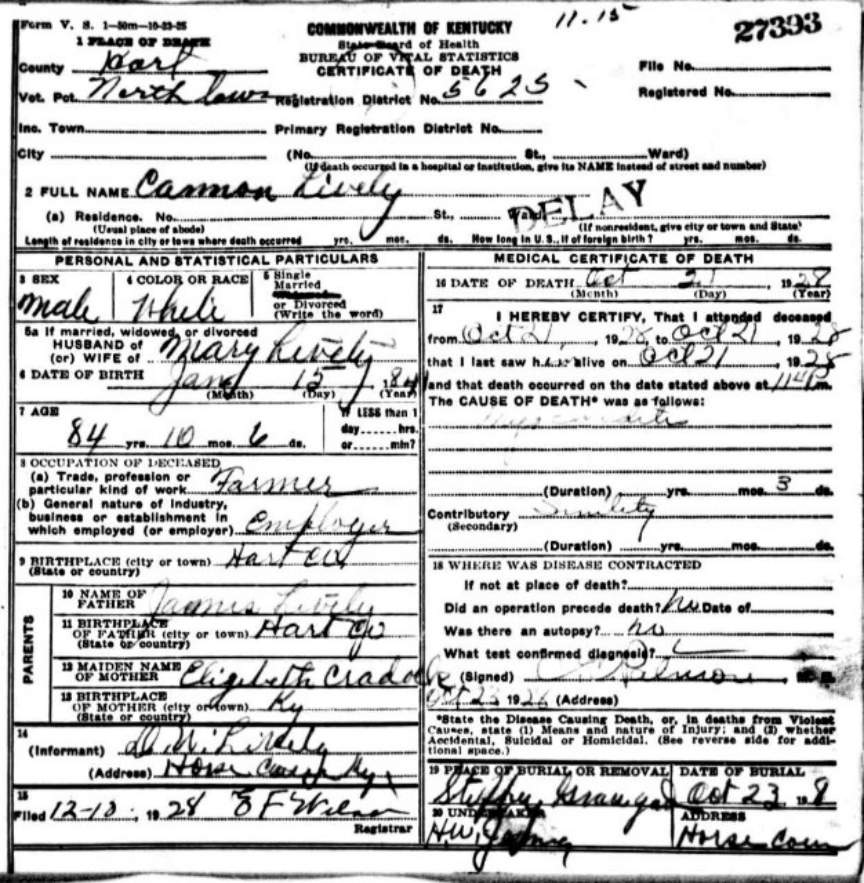 Form V. S. 1-50m-10-23-25
11.15
27393
COMMONWEALTH OF KENTUCKY
State Board of Health
BUREAU OF VITAL STATISTICS
CERTIFICATE OF DEATH
1 PLACE OF DEATH
County Hart
File No.
Vot. Pct. North
Registration District No. 5625
Registered No.
Inc. Town
Primary Registration District No.
City
(No. St., Ward)
(If death occurred in a hospital or institution, give its NAME instead of street and number)
2 FULL NAME Cannon Lively
DELAY
(a) Residence. No. St., Ward.
(Usual place of abode) (If nonresident, give city or town and State)
Length of residence in city or town where death occurred yrs. mos. ds. How long in U. S., if of foreign birth? yrs. mos. ds.
PERSONAL AND STATISTICAL PARTICULARS
3 SEX
Male
4 COLOR OR RACE
White
5 Single
Married
or Divorced
(Write the word)
5a If married, widowed, or divorced
HUSBAND of
(or) WIFE of Mary Lively
6 DATE OF BIRTH Jany 15 184
(Month) (Day) (Year)
7 AGE
84 yrs. 10 mos. 6 ds.
If LESS than 1
day hrs.
or min?
8 OCCUPATION OF DECEASED
(a) Trade, profession or
particular kind of work Farmer
(b) General nature of industry,
business or establishment in
which employed (or employer) Employer
9 BIRTHPLACE (city or town) Hart Co
(State or country)
PARENTS
10 NAME OF
FATHER James Lively
11 BIRTHPLACE
OF FATHER (city or town) Hart Co
(State or country)
12 MAIDEN NAME
OF MOTHER Elizabeth Cradock
13 BIRTHPLACE
OF MOTHER (city or town) Ky
(State or country)
14
(Informant) D. W. Lively
(Address) Horse Cave Ky
15
Filed 12-10, 1928 E F Wilson
Registrar
MEDICAL CERTIFICATE OF DEATH
16 DATE OF DEATH Oct 21, 1928
(Month) (Day) (Year)
17
I HEREBY CERTIFY, That I attended deceased
from Oct 21, 1928, to Oct 21, 1928
that I last saw him alive on Oct 21, 1928
and that death occurred on the date stated above at m.
The CAUSE OF DEATH* was as follows:
Myocarditis
(Duration) yrs. mos. 3 ds.
Contributory Senility
(Secondary)
(Duration) yrs. mos. ds.
18 WHERE WAS DISEASE CONTRACTED
If not at place of death?
Did an operation precede death? no Date of
Was there an autopsy? no
What test confirmed diagnosis?
(Signed)
Oct 23 192 (Address)
*State the Disease Causing Death, or, in deaths from Violent
Causes, state (1) Means and nature of Injury; and (2) whether
Accidental, Suicidal or Homicidal. (See reverse side for addi-
tional space.)
19 PLACE OF BURIAL OR REMOVAL
DATE OF BURIAL
Oct 23 1928
20 UNDERTAKER
ADDRESS
H.W.
Horse Cave